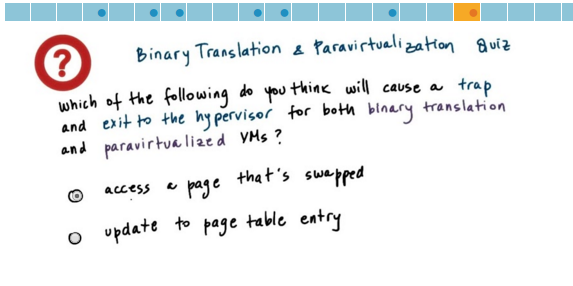 ?
Binary Translation & Paravirtualization Quiz
which of the following do you think will cause a trap
and exit to the hypervisor for both binary translation
and paravirtualized VMs?
access a page that's swapped
update to page table entry